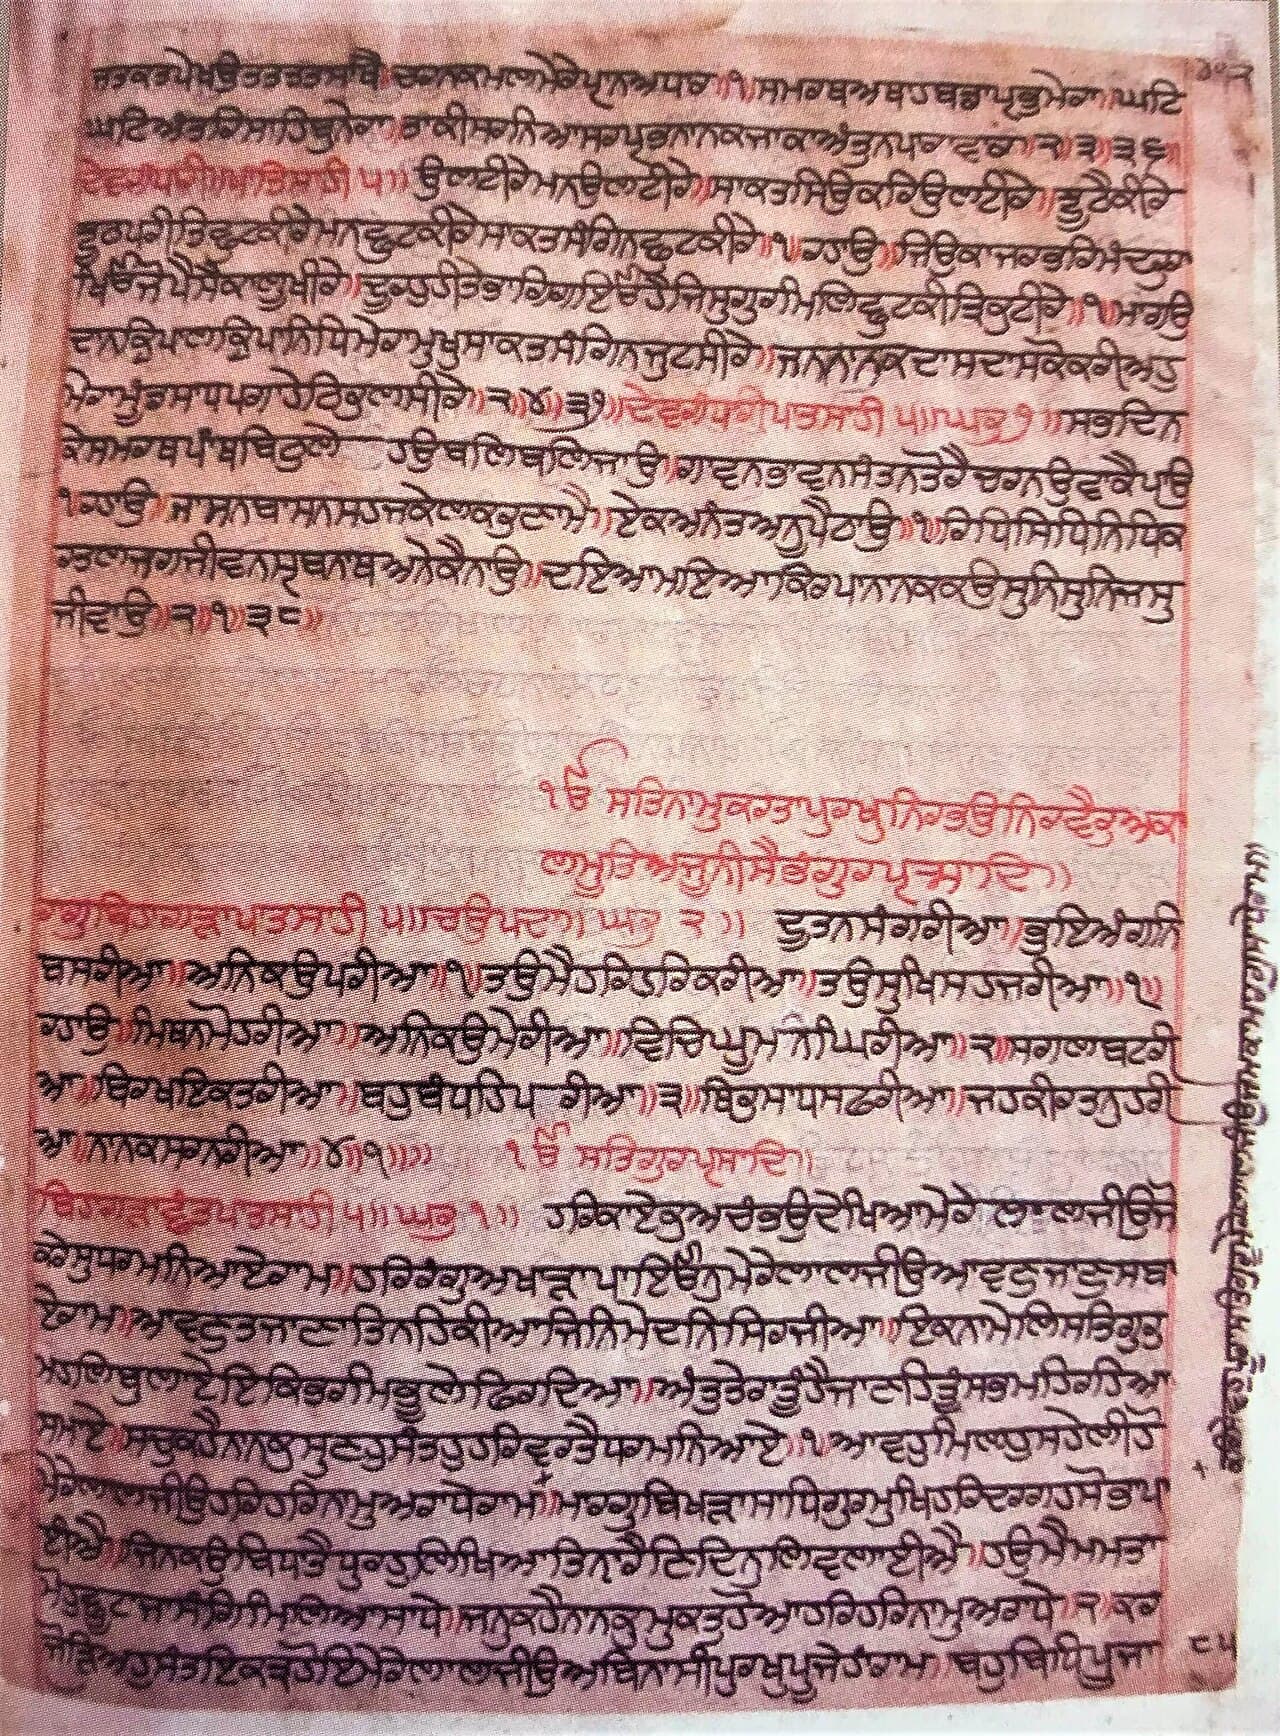 ਜਤਕਤਪੇਖਉਤਤਤਤਸਾਥੈ ਚਰਨਕਮਲਮੇਰੇਪ੍ਰਾਨਅਧਾਰ॥੧॥ਸਮਰਥਅਥਹਬਡਾਪ੍ਰਭੁਮੇਰਾ॥ਘਟਿ
ਘਟਿਅੰਤਰਿਸਾਹਿਬੁਨੇਰਾ॥ਤਾਕੀਸਰਨਿਆਸਰਪ੍ਰਭਨਾਨਕਜਾਕਾਅੰਤੁਨਪਾਰਾਵਾਰ॥੨॥੩॥੩੬॥
ਦੇਵਗੰਧਾਰੀ॥ਪਾਤਿਸਾਹੀ ੫॥ ਉਲਟੀਰੇਮਨਉਲਟੀਰੇ॥ਸਾਕਤਸਿਉਕਰਿਉਲਟੀਰੇ॥ਝੂਠੈਕੀਰੇ
ਝੂਠਪਰੀਤਿਛੁਟਕੀਰੇਮਨਛੁਟਕੀਰੇਸਾਕਤਸੰਗਿਨਛੁਟਕੀਰੇ॥੧॥ਰਹਾਉ॥ਜਿਉਕਾਜਰਭਰਿਮੰਦਰੁ
ਰਾਖਿਓਜੋਪੈਸੈਕਾਲੂਖੀਰੇ॥ਦੂਰਹੁਹੀਤੇਭਾਗਿਗਇਓਹੈਜਿਸੁਗੁਰਮਿਲਿਛੁਟਕੀਤ੍ਰਿਕੁਟੀਰੇ॥੧॥ਮਾਗਉ
ਦਾਨਕ੍ਰਿਪਾਲਕ੍ਰਿਪਾਨਿਧਿਮੇਰਾਮੁਖੁਸਾਕਤਸੰਗਿਨਜੁਟਸੀਰੇ॥ਜਨਨਾਨਕਦਾਸਦਾਸਕੋਕਰੀਅਹੁ
ਮੇਰਾਮੂੰਡਸਾਧਪਗਾਹੇਠਿਰੁਲਸੀਰੇ॥੨॥੪॥੩੭॥ਦੇਵਗੰਧਾਰੀਪਾਤਸਾਹੀ ੫॥ਘਰੁ੭॥ਸਭਦਿਨ
ਕੇਸਮਰਥਪੰਥਬਿਠੁਲੇ ਹਉਬਲਿਬਲਿਜਾਉ॥ਗਾਵਨਭਾਵਨਸੰਤਨਤੋਰੈਚਰਨਉਵਾਕੈਪਾਉ
੧ਰਹਾਉ॥ਜਾਸਨਬਾਸਨਸਹਜਕੇਲਕਰੁਣਾਮੈ॥ਏਕਅਨੰਤਅਨੂਪੈਠਾਉ॥੧॥ਰਿਧਿਸਿਧਿਨਿਧਿਕ
ਰਤਲਾਜਗਜੀਵਨਸ੍ਰਬਨਾਥਅਨੇਕੈਨਾਉ॥ਦਇਆਮਇਆਕਿਰਪਾਨਾਨਕਕਉਸੁਨਿਸੁਨਿਜਸੁ
ਜੀਵਾਉ॥੨॥੧॥੩੮॥
੧ਓ ਸਤਿਨਾਮੁਕਰਤਾਪੁਰਖੁਨਿਰਭਉਨਿਰਵੈਰੁਅਕਾ
ਲਮੂਰਤਿਅਜੂਨੀਸੈਭੰਗੁਰਪ੍ਰਸਾਦਿ॥
ਰਾਗੁਬਿਹਾਗੜਾਪਾਤਸਾਹੀ ੫॥ਚਉਪਦਾ॥ਘਰੁ ੨॥ ਦੂਤਨਸੰਗਰੀਆ॥ਭੁਇਅੰਗਨਿ
ਬਸਰੀਆ॥ਅਨਿਕਉਪਰੀਆ॥੧॥ਤਉਮੈਹਰਿਹਰਿਕਰੀਆ॥ਤਉਸੁਖਿਸਹਜਰੀਆ॥੧॥
ਰਹਾਉ॥ਮਿਥਨਮੋਹਰੀਆ॥ਅਨਿਕਉਮੇਰੀਆ॥ਵਿਚਿਘੂਮਨੀਘਰੀਆ॥੨॥ਸਗਲਬਟਰੀ
ਆ॥ਬਿਰਖਇਕਤਰੀਆ॥ਬਹੁਬੰਧਹਿਪਰੀਆ॥੩॥ਥਿਰੁਸਾਧਸਫਰੀਆ॥ਜਹਕੀਰਤਨੁਹਰੀ
ਆ॥ਨਾਨਕਸਰਨਰੀਆ॥੪॥੧॥ ੧ਓ ਸਤਿਗੁਰਪ੍ਰਸਾਦਿ॥
ਬਿਹਾਗੜਾਛੰਤਪਾਤਸਾਹੀ ੫॥ਘਰੁ ੧॥ ਹਰਿਕਾਏਕੁਅਚੰਭਉਦੇਖਿਆਮੇਰੇ ਲਾਲਜੀਉਜੋ
ਕਰੇਸੁਧਰਮਨਿਆਏਰਾਮ॥ਹਰਿਰੰਗੁਅਖਾੜਾਪਾਇਓਨੁਮੇਰੇਲਾਲਜੀਉਆਵਣੁਜਾਣੁਸਬਾ
ਏਰਾਮ॥ਆਵਣੁਤਜਾਣਾਤਿਨਹਿਕੀਆਜਿਨਿਮੇਦਨਿਸਿਰਜੀਆ॥ਇਕਨਾਮੇਲਿਸਤਿਗੁਰੁ
ਮਹਲਿਬੁਲਾਏਇਕਿਭਰਮਿਭੂਲੇਫਿਰਦਿਆ॥ਅੰਤੁਤੇਰਾਤੂੰਹੈਜਾਣਹਿਤੂੰਸਭਮਹਿਰਹਿਆ
ਸਮਾਏ॥ਸਚੁਕਹੈਨਾਨਕੁਸੁਣਹੁਸੰਤਹੁਹਰਿਵਰਤੈਧਰਮਨਿਆਏ॥੧॥ਆਵਹੁਮਿਲਹੁਸਹੇਲੀਹੋ
ਮੇਰੇਲਾਲਜੀਉਹਰਿਹਰਿਨਾਮੁਅਰਾਧੇਰਾਮ॥ਮਾਰਗੁਬਿਖੜਾਸਾਧਿਗੁਰਮੁਖਿਹਰਿਦਰਗਹਸੋਭਾਪਾ
ਈਐ॥ਜਿਨਕਉਬਿਧਾਤੈਧੁਰਹੁਲਿਖਿਆਤਿਨ੍ਹਾਰੈਣਿਦਿਨੁਲਿਵਲਾਈਐ॥ਹਉਮੈਮਮਤਾ
ਮੋਹੁਛੁਟਾਜਾਸੰਗਿਮਿਲਿਆਸਾਧੇ॥ਜਨੁਕਹੈਨਾਨਕੁਮੁਕਤੁਹੋਆਹਰਿਹਰਿਨਾਮੁਅਰਾਧੇ॥੨॥ਕਰ
ਜੋੜਿਅਹੁਸੰਤਇਕਤ੍ਰਹੋਇਮੇਰੇਲਾਲਜੀਉਅਬਿਨਾਸੀਪੁਰਖੁਪੂਜੇਹਾਂਰਾਮ॥ਬਹੁਬਿਧਿਪੂਜਾ